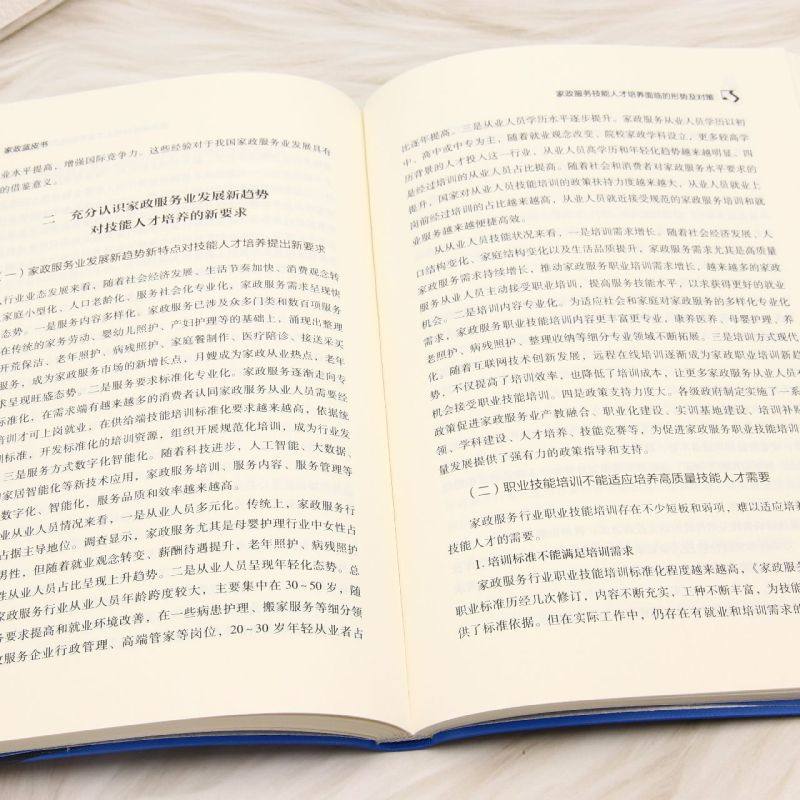 家政蓝皮书
业水平提高,增强国际竞争力。这些经验对于我国家政服务业发展具有
的借鉴意义。
二 充分认识家政服务业发展新趋势
对技能人才培养的新要求
(一)家政服务业发展新趋势新特点对技能人才培养提出新要求
人行业业态发展来看,随着社会经济发展、生活节奏加快、消费观念转
家庭小型化、人口老龄化、服务社会化专业化,家政服务需求呈现快
态势。一是服务内容多样化。家政服务已涉及众多门类和数百项服务
在传统的家务劳动、婴幼儿照护、产妇护理等的基础上,涌现出整理
开荒保洁、老年照护、病残照护、家庭餐制作、医疗陪诊、接送采买
服务,成为家政服务市场的新增长点,月嫂成为家政从业热点,老年
求呈现旺盛态势。二是服务要求标准化专业化。家政服务逐渐走向专
标准化,在需求端有越来越多的消费者认同家政服务从业人员需要经
培训才可上岗就业,在供给端技能培训标准化要求越来越高,依据统
训标准,开发标准化的培训资源,组织开展规范化培训,成为行业发
三是服务方式数字化智能化。随着科技进步,人工智能、大数据、
家居智能化等新技术应用,家政服务培训、服务内容、服务管理等
数字化、智能化,服务品质和效率越来越高。
业从业人员情况来看,一是从业人员多元化。传统上,家政服务行
占据主导地位。调查显示,家政服务尤其是母婴护理行业中女性占
男性,但随着就业观念转变、薪酬待遇提升,老年照护、病残照护
性从业人员占比呈现上升趋势。二是从业人员呈现年轻化态势。总
家政服务行业从业人员年龄跨度较大,主要集中在30~50岁,随
务要求提高和就业环境改善,在一些病患护理、搬家服务等细分领
政服务企业行政管理、高端管家等岗位,20~30岁年轻从业者占
家政服务技能人才培养面临的形势及对策
比逐年提高。三是从业人员学历水平逐步提升。家政服务从业人员以初
中、高中或中专为主,随着就业观念改变、院校家政学科设立,更多高学
历背景的人才投入这一行业,从业人员高学历和年轻化趋势越来越明显。四
是经过培训的从业人员占比提高。随着社会和消费者对家政服务水平要求的
提升,国家对从业人员技能培训的政策扶持力度越来越大,从业人员就业上
岗前经过培训的占比越来越高,从业人员就近接受规范的家政服务培训和就
业服务越来越便捷高效。
从从业人员技能状况来看,一是培训需求增长。随着社会经济发展、人
口结构变化、家庭结构变化以及生活品质提升,家政服务需求尤其是高质量
家政服务需求持续增长,推动家政服务职业培训需求增长,越来越多的家政
服务从业人员主动接受职业培训,提高服务技能水平,以求获得更好的就业
机会。二是培训内容专业化。为适应社会和家庭对家政服务的多样化专业化
需求,家政服务职业技能培训内容更丰富更专业,康养医养、母婴护理、养
老照护、病残照护、整理收纳等细分专业领域不断拓展。三是培训方式现代
化。随着互联网技术创新发展,远程在线培训逐渐成为家政职业培训新趋
势,不仅提高了培训效率,也降低了培训成本,让更多家政服务从业人员
机会接受职业技能培训。四是政策支持力度大。各级政府制定实施了一系
政策促进家政服务业产教融合、职业化建设、实训基地建设、培训补贴
领、学科建设、人才培养、技能竞赛等,为促进家政服务职业技能培训
量发展提供了强有力的政策指导和支持。
(二)职业技能培训不能适应培养高质量技能人才需要
家政服务行业职业技能培训存在不少短板和弱项,难以适应培养
技能人才的需要。
1. 培训标准不能满足培训需求
家政服务行业职业技能培训标准化程度越来越高,《家政服务
职业标准历经几次修订,内容不断充实,工种不断丰富,为技能
供了标准依据。但在实际工作中,仍存在有就业和培训需求的